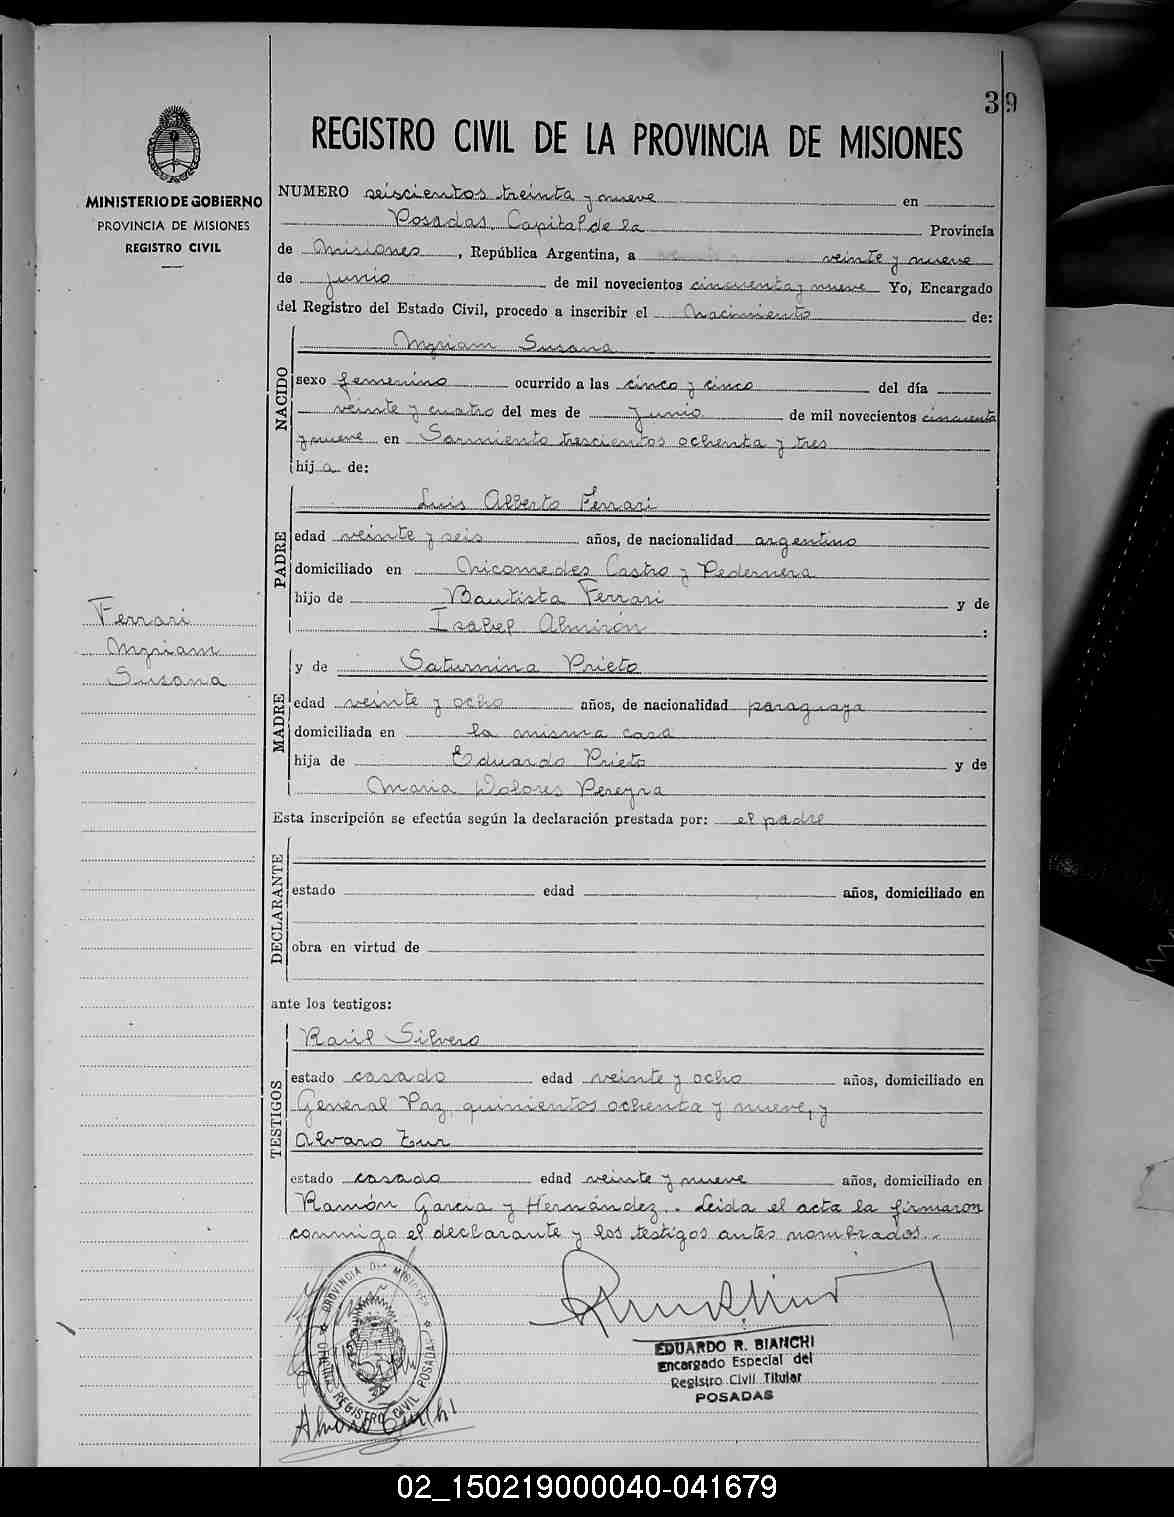 39
REGISTRO CIVIL DE LA PROVINCIA DE MISIONES
MINISTERIO DE GOBIERNO
PROVINCIA DE MISIONES
REGISTRO CIVIL
NUMERO seiscientos treinta y nueve en
Posadas, Capital de la Provincia
de Misiones, República Argentina, a veinte y nueve
de Junio de mil novecientos cincuenta y nueve Yo, Encargado
del Registro del Estado Civil, procedo a inscribir el Nacimiento de:
NACIDO
Myriam Susana
sexo femenino ocurrido a las cinco y cinco del día
veinte y cuatro del mes de Junio de mil novecientos cincuenta
y nueve en Sarmiento trescientos ochenta y tres
hij a de:
PADRE
Luis Alberto Ferrari
edad veinte y seis años, de nacionalidad argentino
domiciliado en Nicomedes Castro y Pedernera
hijo de Bautista Ferrari y de
Isabel Almirón :
Ferrari
Myriam
Susana
MADRE
y de Saturnina Prieto
edad veinte y ocho años, de nacionalidad paraguaya
domiciliada en la misma casa
hija de Eduardo Prieto y de
Maria Dolores Pereyra
Esta inscripción se efectúa según la declaración prestada por: el padre
DECLARANTE
estado edad años, domiciliado en
obra en virtud de
ante los testigos:
TESTIGOS
Raúl Silvero
estado casado edad veinte y ocho años, domiciliado en
General Paz quinientos ochenta y nueve, y
Alvaro Zur
estado casado edad veinte y nueve años, domiciliado en
Ramón Garcia y Hernández.. Leida el acta la firmaron
conmigo el declarante y los testigos antes nombrados..
PROVINCIA DE MISIONES
OFICINA REGISTRO CIVIL POSADAS
EDUARDO R. BIANCHI
Encargado Especial del
Registro Civil Titular
POSADAS
02_150219000040-041679